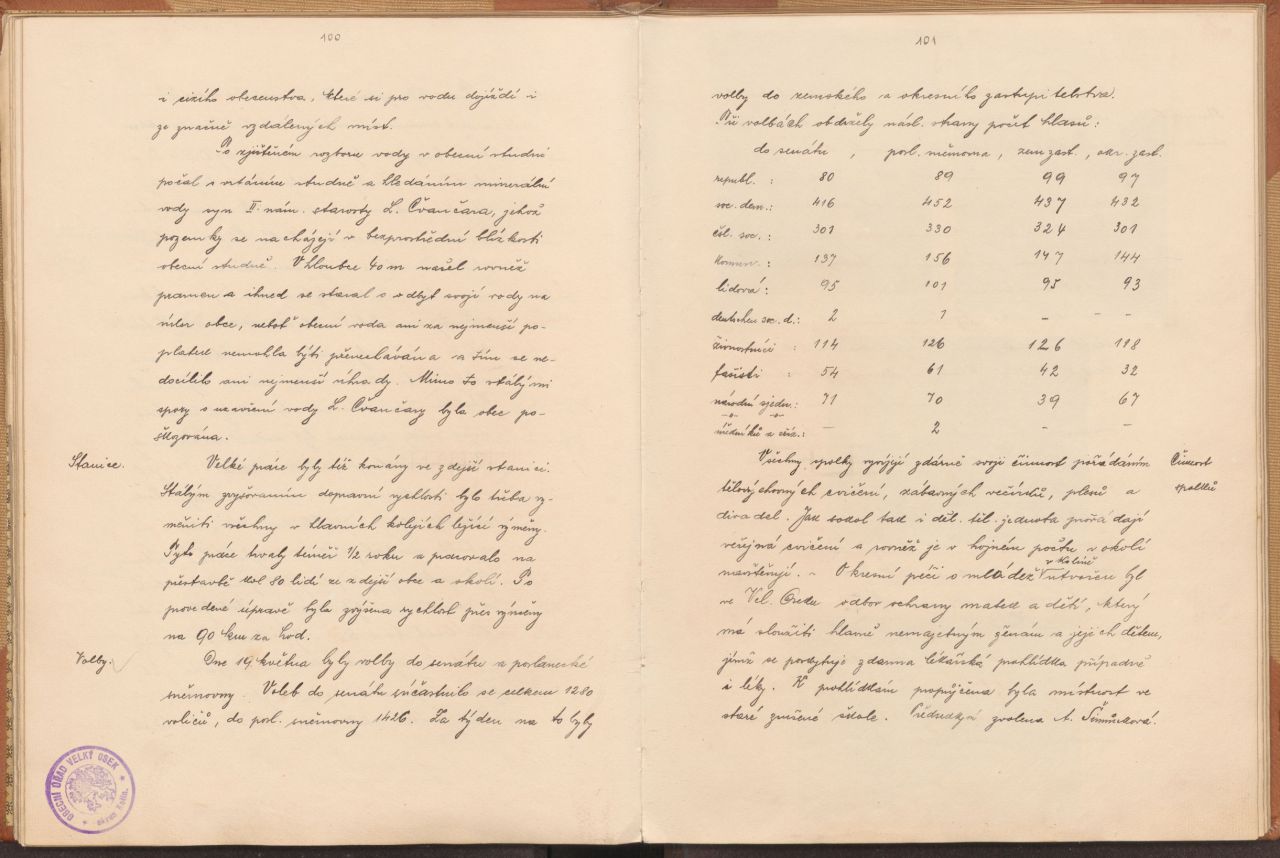 100
i cizího obecenstva, které si pro vodu dojíždí i
ze značně vzdálených míst.
Po zjištěném rozboru vody v obecní studni
počal s vrtáním studně a hledáním minerální
vody syn II. nám. starosty L. Čvančara, jehož
pozemky se nacházejí v bezprostřední blízkosti
obecní studně. V hloubce 40 m našel rovněž
pramen a ihned se staral o odbyt svojí vody na
úkor obce, neboť obecní voda ani za nejmenší po-
platek nemohla býti přenechávána a tím se ne-
docílilo ani nejmenší úhrady. Mimo to stálými
spory o uzavření vody L. Čvančary byla obec po-
škozována.
Stanice.
Velké práce byly též konány ve zdejší stanici.
Stálým zvyšováním dopravní rychlosti bylo třeba vy-
měniti všechny v hlavních kolejích ležící výměny.
Tyto práce trvaly téměř 1/2 roku a pracovalo na
přestavbě kol 80 lidí ze zdejší obce a okolí. Po
provedené úpravě byla zvýšena rychlost přes výměny
na 90 km za hod.
Volby.
Dne 19. května byly volby do senátu a poslanecké
sněmovny. Voleb do senátu súčastnilo se celkem 1280
voličů, do posl. sněmovny 1426. Za týden na to byly
OBECNÍ ÚŘAD VELKÝ OSEK
okres Kolín.
101
volby do zemského a okresního zastupitelstva.
Při volbách obdržely násl. strany počet hlasů:
do senátu, posl. sněmovna, zem. zast., okr. zast.
republ.: 80 89 99 97
soc. dem.: 416 452 437 432
čsl. soc.: 301 330 324 301
komun.: 137 156 147 144
lidová: 95 101 95 93
deutschen soc. d.: 2 1 - -
živnostníci: 114 126 126 118
fašisti: 54 61 42 32
národní sjedn.: 71 70 39 67
úředníků a zříz.: - 2 - -
Všechny spolky vyvíjejí zdárně svoji činnost pořádáním
Činnost
spolků
tělovýchovných cvičení, zábavných večírků, plesů a
divadel. Jak sokol tak i děl. těl. jednota pořádají
veřejná cvičení a rovněž je v hojném počtu v okolí
navštěvují. - Okresní péčí o mládež v Kolíně utvořen byl
ve Vel. Oseku odbor ochrany matek a dětí, který
má sloužiti hlavně nemajetným ženám a jejich dětem,
jimž se poskytuje zdarma lékařská prohlídka případně
i léky. K prohlídkám propůjčena byla místnost ve
staré zrušené škole. Předsedkyní zvolena A.